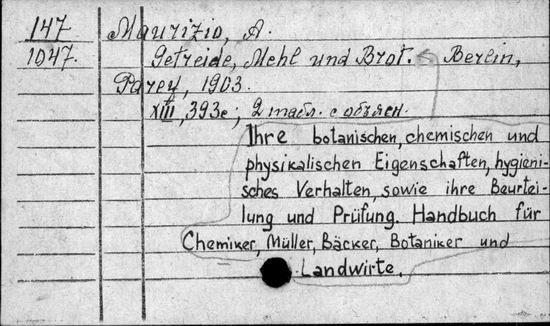 147 Maurizio, A.
1047. Getreide, Mehl und Brot. Berlin,
Parey, 1903.
XIII, 393с; 2 табл. с объясн.
Ihre botanischen, chemischen und
physikalischen Eigenschaften, hygieni-
sches Verhalten, sowie ihre Beurtei-
lung und Prüfung. Handbuch für
Chemiker, Müller, Bäcker, Botaniker und
Landwirte.